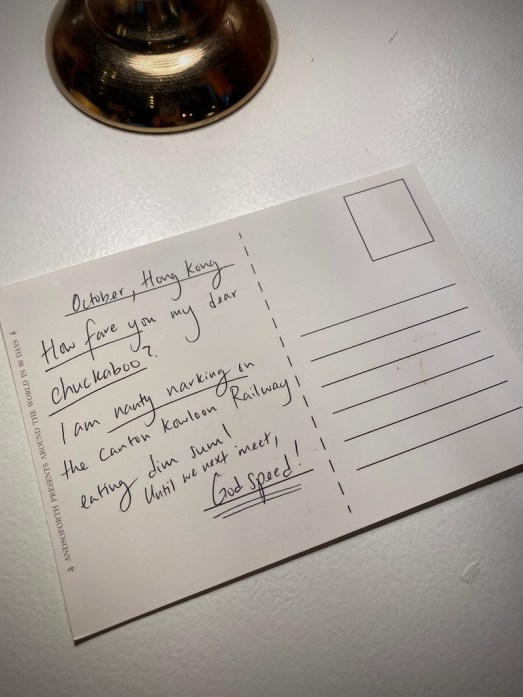 October, Hong Kong
How fare you my dear
chuckaboo?
I am nanty narking on
the Canton Kowloon Railway
eating dim sum!
Until we next meet,
God speed!
ANDSOFORTH PRESENTS AROUND THE WORLD IN 80 DAYS